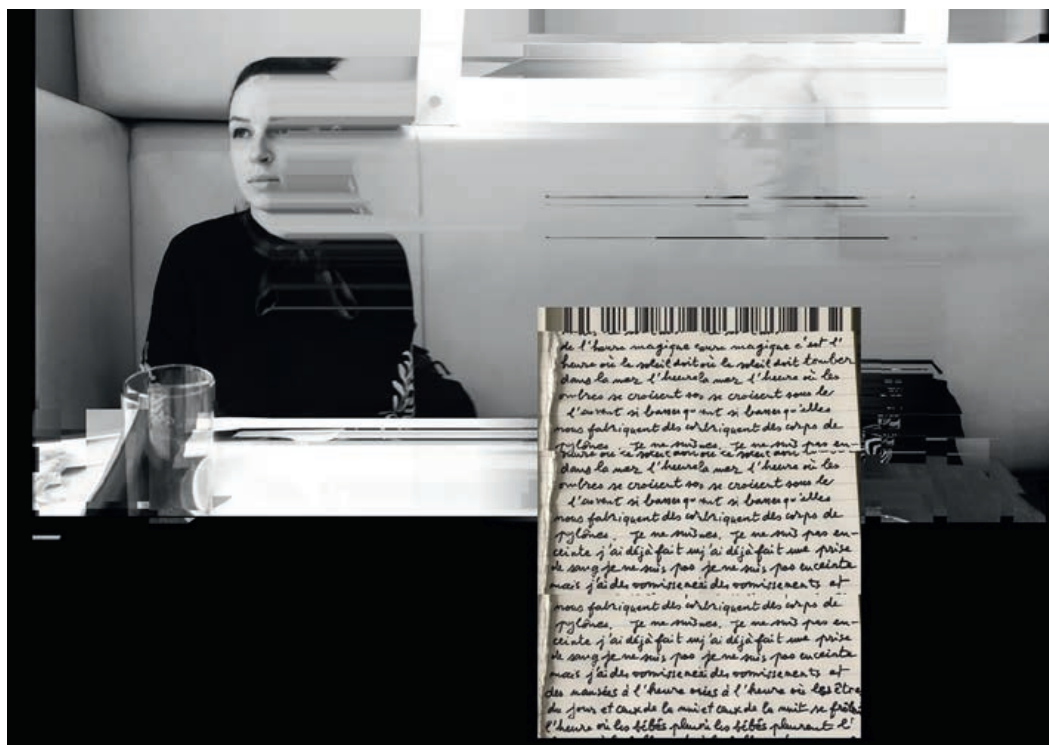 de l'heure magique eure magique c'est l'
heure où le soleil doit où le soleil doit tomber
dans la mer l'heure la mer l'heure où les
ombres se croisent sos se croisent sous le
l'auvent si basses qu'ent si basses qu'elles
nous fabriquent des corbriquent des corps de
pylônes. Je ne suis nes. Je ne suis pas en-
dans la mer l'heure la mer l'heure où les
ombres se croisent sos se croisent sous le
l'auvent si basses qu'ent si basses qu'elles
nous fabriquent des corbriquent des corps de
pylônes. Je ne suis nes. Je ne suis pas en-
ceinte j'ai déjà fait unj'ai déjà fait une prise
de sang je ne suis pas je ne suis pas enceinte
mais j'ai des vomissements des vomissements et
nous fabriquent des corbriquent des corps de
pylônes. Je ne suis nes. Je ne suis pas en-
ceinte j'ai déjà fait unj'ai déjà fait une prise
de sang je ne suis pas je ne suis pas enceinte
mais j'ai des vomissements des vomissements et
des nausées à l'heure osées à l'heure où les être
du jour et ceux de la nui et ceux de la nuit se frôle
l'heure où les bébés pleurù les bébés pleurent l'